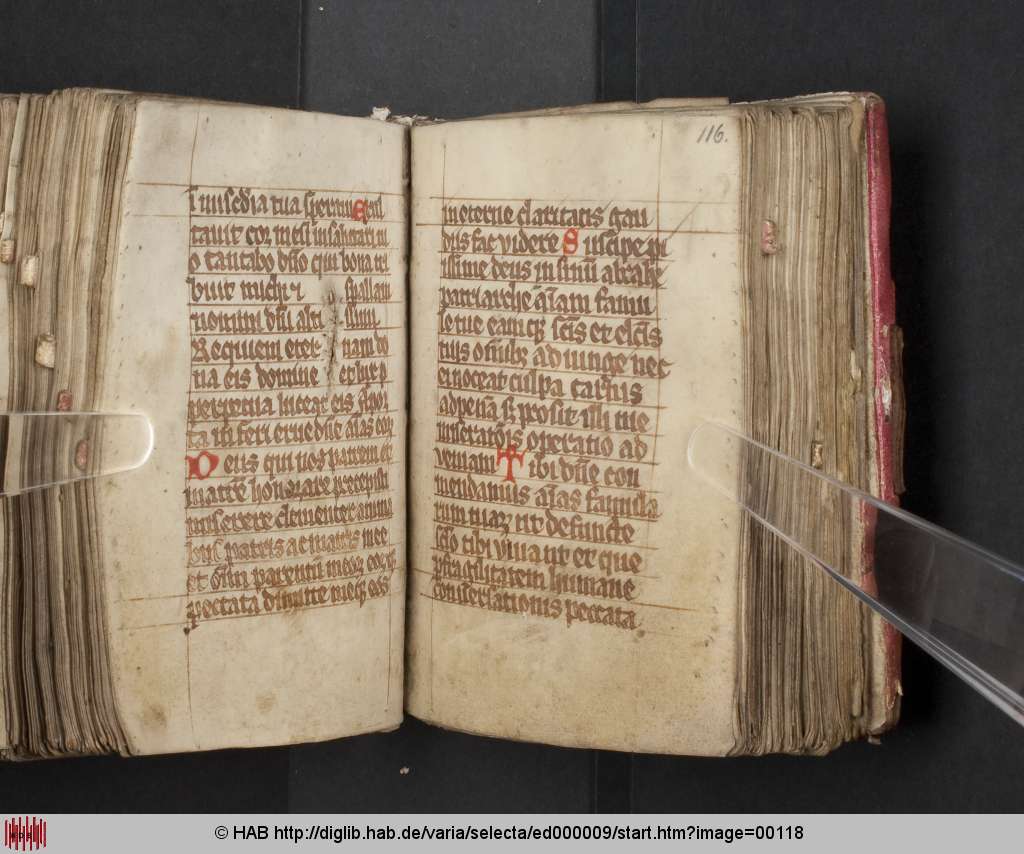 i miscd̄ia tua speraui Exul
tauit cor meū in salutari tu
o cantabo dn̄o qui bona tri
buit michi ⁊ psallam
nomini dn̄i alti ssimi
Requiem eter nam do
na eis domine et lux p
perpetua luceat eis A por
ta inferi erue dn̄e aīas eoꝝ
Deus qui nos patrem et
matrē honorare precepisti
miserere clementer anima
bus patris ac matris mee
et om̄ parentū meoꝝ eoꝝ
peccata dimitte meqꝫ eos
116.
in eterne claritatis gau
dijs fac videre Suscipe pi
issime deus in sinū abrahe
patriarche aīam famu
le tue eamqꝫ scīs et elc̄is
tuis om̄ibꝫ adiunge nec
ei noceat culpa carnis
ad penā sꝫ prosit illi tue
miseratōis operatio ad
veniam Tibi dn̄e com
mendamus aīas famula
rum tuaꝝ ut defuncte
sclo tibi viuant et que
ꝑ fragilitatem humane
conuersationis peccata
© HAB http://diglib.hab.de/varia/selecta/ed000009/start.htm?image=00118